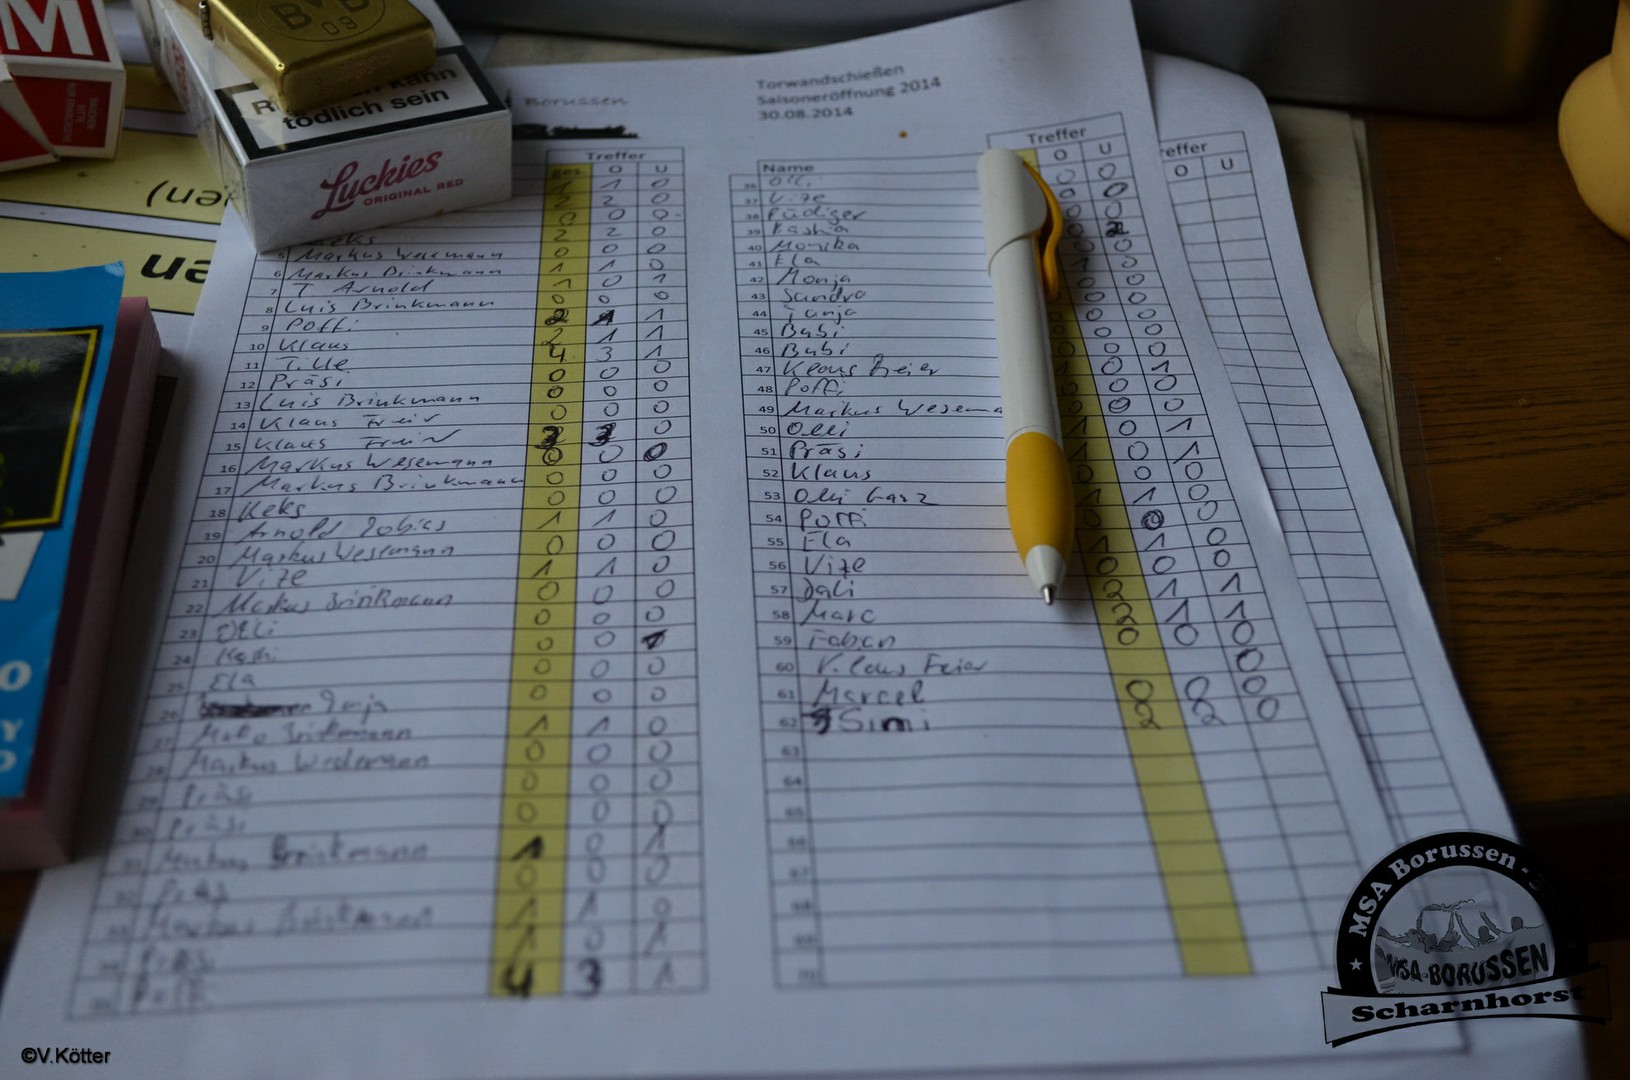 M
BVB
09
kann
tödlich sein
Luckies
ORIGINAL RED
Borussen
Torwandschießen
Saisoneröffnung 2014
30.08.2014
Treffer
ges. O U
1 1 0
2 2 0
0 0 0
Keks 2 2 0
5 Markus Wesemann 0 0 0
6 Markus Brinkmann 1 1 0
7 T. Arnold 1 0 1
8 Luis Brinkmann 0 0 0
9 Poffi 2 1 1
10 Klaus 2 1 1
11 Tille 4 3 1
12 Präsi 0 0 0
13 Luis Brinkmann 0 0 0
14 Klaus 0 0 0
15 Klaus 3 3 0
16 Markus Wesemann 0 0 0
17 Markus Brinkmann 0 0 0
18 Keks 0 0 0
19 Arnold Tobias 1 1 0
20 Markus Wesemann 0 0 0
21 Vize 1 1 0
22 Markus Brinkmann 0 0 0
23 Olli 0 0 0
24 Kashi 0 0
25 Ela 0 0 0
26 Tanja 0 0 0
27 Brinkmann 1 1 0
28 Markus Wesemann 0 0 0
29 Präsi 0 0 0
30 Präsi 0 0 0
31 Markus Brinkmann 1 0 1
32 Präsi 0 0 0
33 Markus Brinkmann 1 1 0
34 Präsi 1 0 1
35 4 3 1
Treffer
Name O U
36 Olli 0 0
37 Vize 0 0
38 Rüdiger 0 0
39 Kashia 0 2
40 Monika 0
41 Ela 1 0
42 Monja 0 0
43 Sandra 0 0
44 Tanja 0 0
45 Bubi 0 0 0
46 Bubi 0 0 0
47 Klaus Freier 1 0 1
48 Poffi 0 0 0
49 Markus Wesema 0 0 0
50 Olli 1 0 1
51 Präsi 1 0 1
52 Klaus 0 0 0
53 Olli 1 1 0
54 Poffi 0 0 0
55 Ela 1 1 0
56 Vize 0 0 0
57 Dali 2 1 1
58 Marc 2 1 1
59 Faban 0 0 0
60 Klaus Feier 0
61 Marcel 0 0 0
62 Simi 2 2 0
63
64
65
66
67
68
69
70
effer
O U
en
O
Y
MSA Borussen
MSA-BORUSSEN
Scharnhorst
©V.Kötter